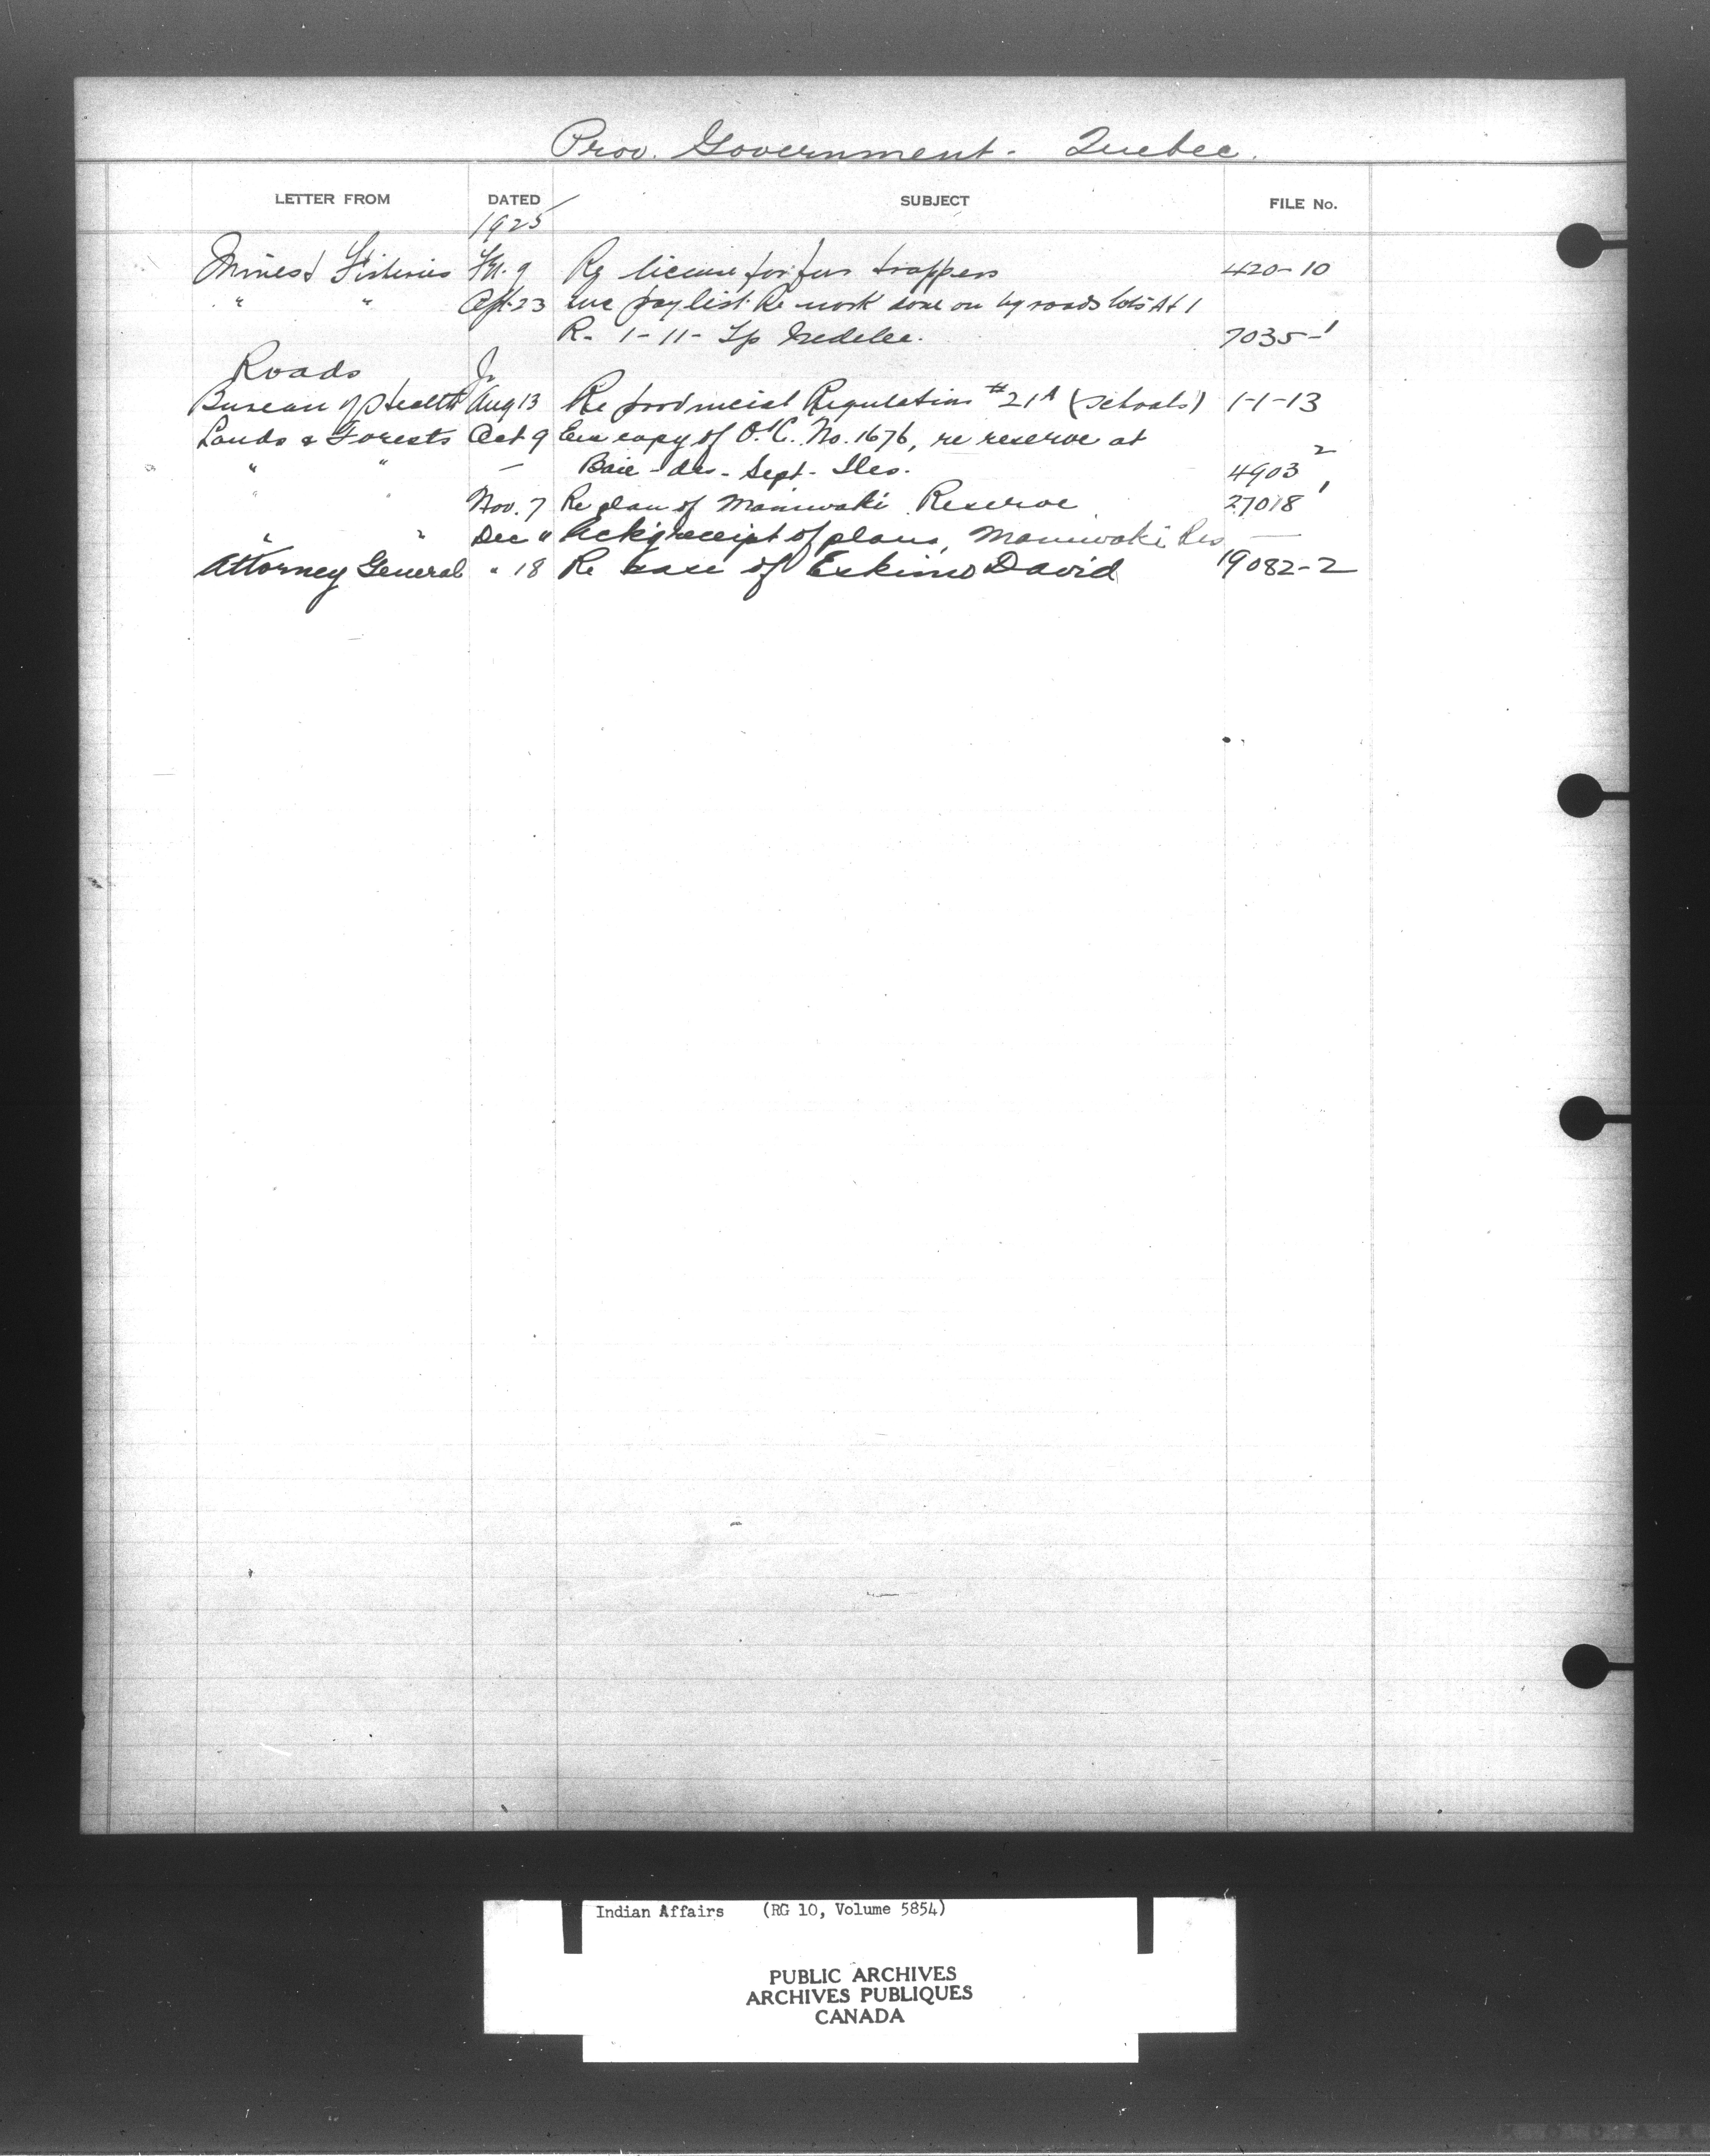 Prov. Government - Quebec.
LETTER FROM DATED SUBJECT FILE No.
1925
Mines & Fisheries 9 license for fur trappers 420-10
" " Apl. 23 pay list Re work done on by roads lots
R. 1-11- Tp 7035-1
Roads
Bureau of Health Aug 13 Re provincial Regulation #21A (schools) 1-1-13
Lands & Forests Oct 9 Enc copy of O.C. No. 1676, re reserve at
" " - Baie-des-Sept-Iles. 4903 2
" " Nov. 7 Re plan of Maniwaki Reserve 27018 1
" " Dec " Ackg receipt of plans, Maniwaki Res —
Attorney General " 18 Re case of Eskimo David 19082-2
Indian Affairs (RG 10, Volume 5854)
PUBLIC ARCHIVES
ARCHIVES PUBLIQUES
CANADA